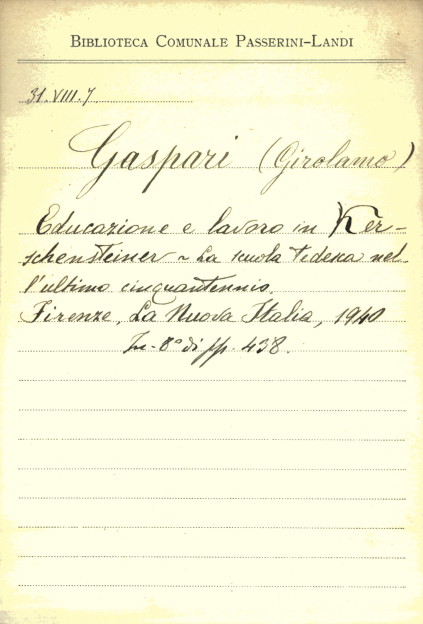 BIBLIOTECA COMUNALE PASSERINI-LANDI
31.VIII.7
Gaspari (Girolamo)
Educazione e lavoro in Ker-
schensteiner ~ La scuola tedesca nel-
l'ultimo cinquantennio.
Firenze, La Nuova Italia, 1940
In-8° di pp. 438.